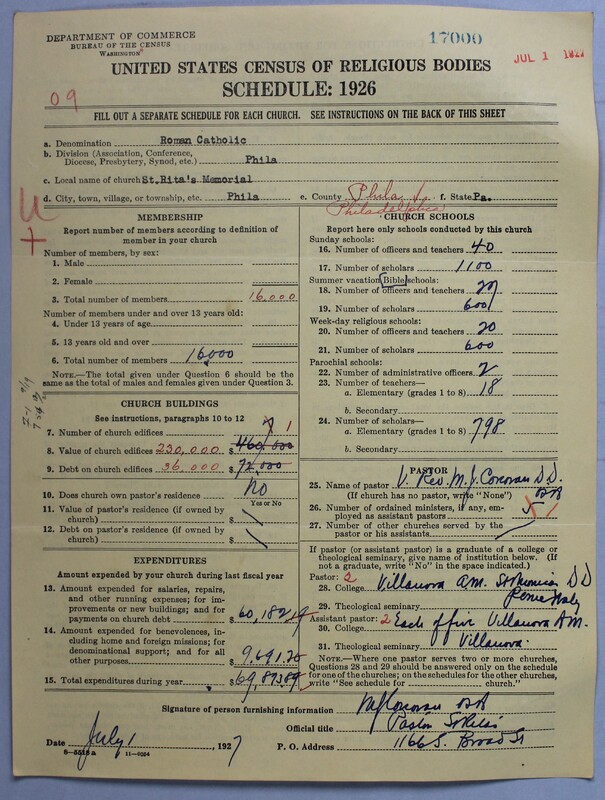 DEPARTMENT OF COMMERCE
BUREAU OF THE CENSUS
WASHINGTON
17000
JUL 1 1927
UNITED STATES CENSUS OF RELIGIOUS BODIES
SCHEDULE: 1926
09
FILL OUT A SEPARATE SCHEDULE FOR EACH CHURCH. SEE INSTRUCTIONS ON THE BACK OF THIS SHEET
a. Denomination Roman Catholic
b. Division (Association, Conference, Diocese, Presbytery, Synod, etc.) Phila
c. Local name of church St.Rita's Memorial
d. City, town, village, or township, etc. Phila e. County Phila f. State Pa.
Philadelphia
U
+
MEMBERSHIP
Report number of members according to definition of
member in your church
Number of members, by sex:
1. Male
2. Female
3. Total number of members 16,000
Number of members under and over 13 years old:
4. Under 13 years of age
5. 13 years old and over
6. Total number of members 16,000
NOTE.—The total given under Question 6 should be the
same as the total of males and females given under Question 3.
CHURCH BUILDINGS
See instructions, paragraphs 10 to 12
7. Number of church edifices 1
8. Value of church edifices 230,000 $460,000
9. Debt on church edifices 36,000 $72,000
10. Does church own pastor's residence No
Yes or No
11. Value of pastor's residence (if owned by
church) $
12. Debt on pastor's residence (if owned by
church) $
EXPENDITURES
Amount expended by your church during last fiscal year
13. Amount expended for salaries, repairs,
and other running expenses; for im-
provements or new buildings; and for
payments on church debt $60,182.19
14. Amount expended for benevolences, in-
cluding home and foreign missions; for
denominational support; and for all
other purposes $9,691.20
15. Total expenditures during year $69,873.39
CHURCH SCHOOLS
Report here only schools conducted by this church
Sunday schools:
16. Number of officers and teachers 40
17. Number of scholars 1100
Summer vacation [Bible] schools:
18. Number of officers and teachers 20
19. Number of scholars 600
Week-day religious schools:
20. Number of officers and teachers 20
21. Number of scholars 600
Parochial schools:
22. Number of administrative officers 2
23. Number of teachers—
a. Elementary (grades 1 to 8) 18
b. Secondary
24. Number of scholars—
a. Elementary (grades 1 to 8) 798
b. Secondary
PASTOR
25. Name of pastor V. Rev M. J. Corcoran D.D.
(If church has no pastor, write "None") OSA
26. Number of ordained ministers, if any, em-
ployed as assistant pastors 5
27. Number of other churches served by the
pastor or his assistants
If pastor (or assistant pastor) is a graduate of a college or
theological seminary, give name of institution below. (If
not a graduate, write "No" in the space indicated.)
Pastor: 2
28. College Villanova A.M. St Monica D D
29. Theological seminary Rome Italy
Assistant pastor: 2
30. College Each of five Villanova A.M.
31. Theological seminary Villanova
NOTE.—Where one pastor serves two or more churches,
Questions 28 and 29 should be answered only on the schedule
for one of the churches; on the schedules for the other churches,
write "See schedule for church."
Signature of person furnishing information M J Corcoran OSA
Official title Pastor St Ritas
Date July 1, 1927 P. O. Address 1166 S. Broad St
6—5518 a 11—9034